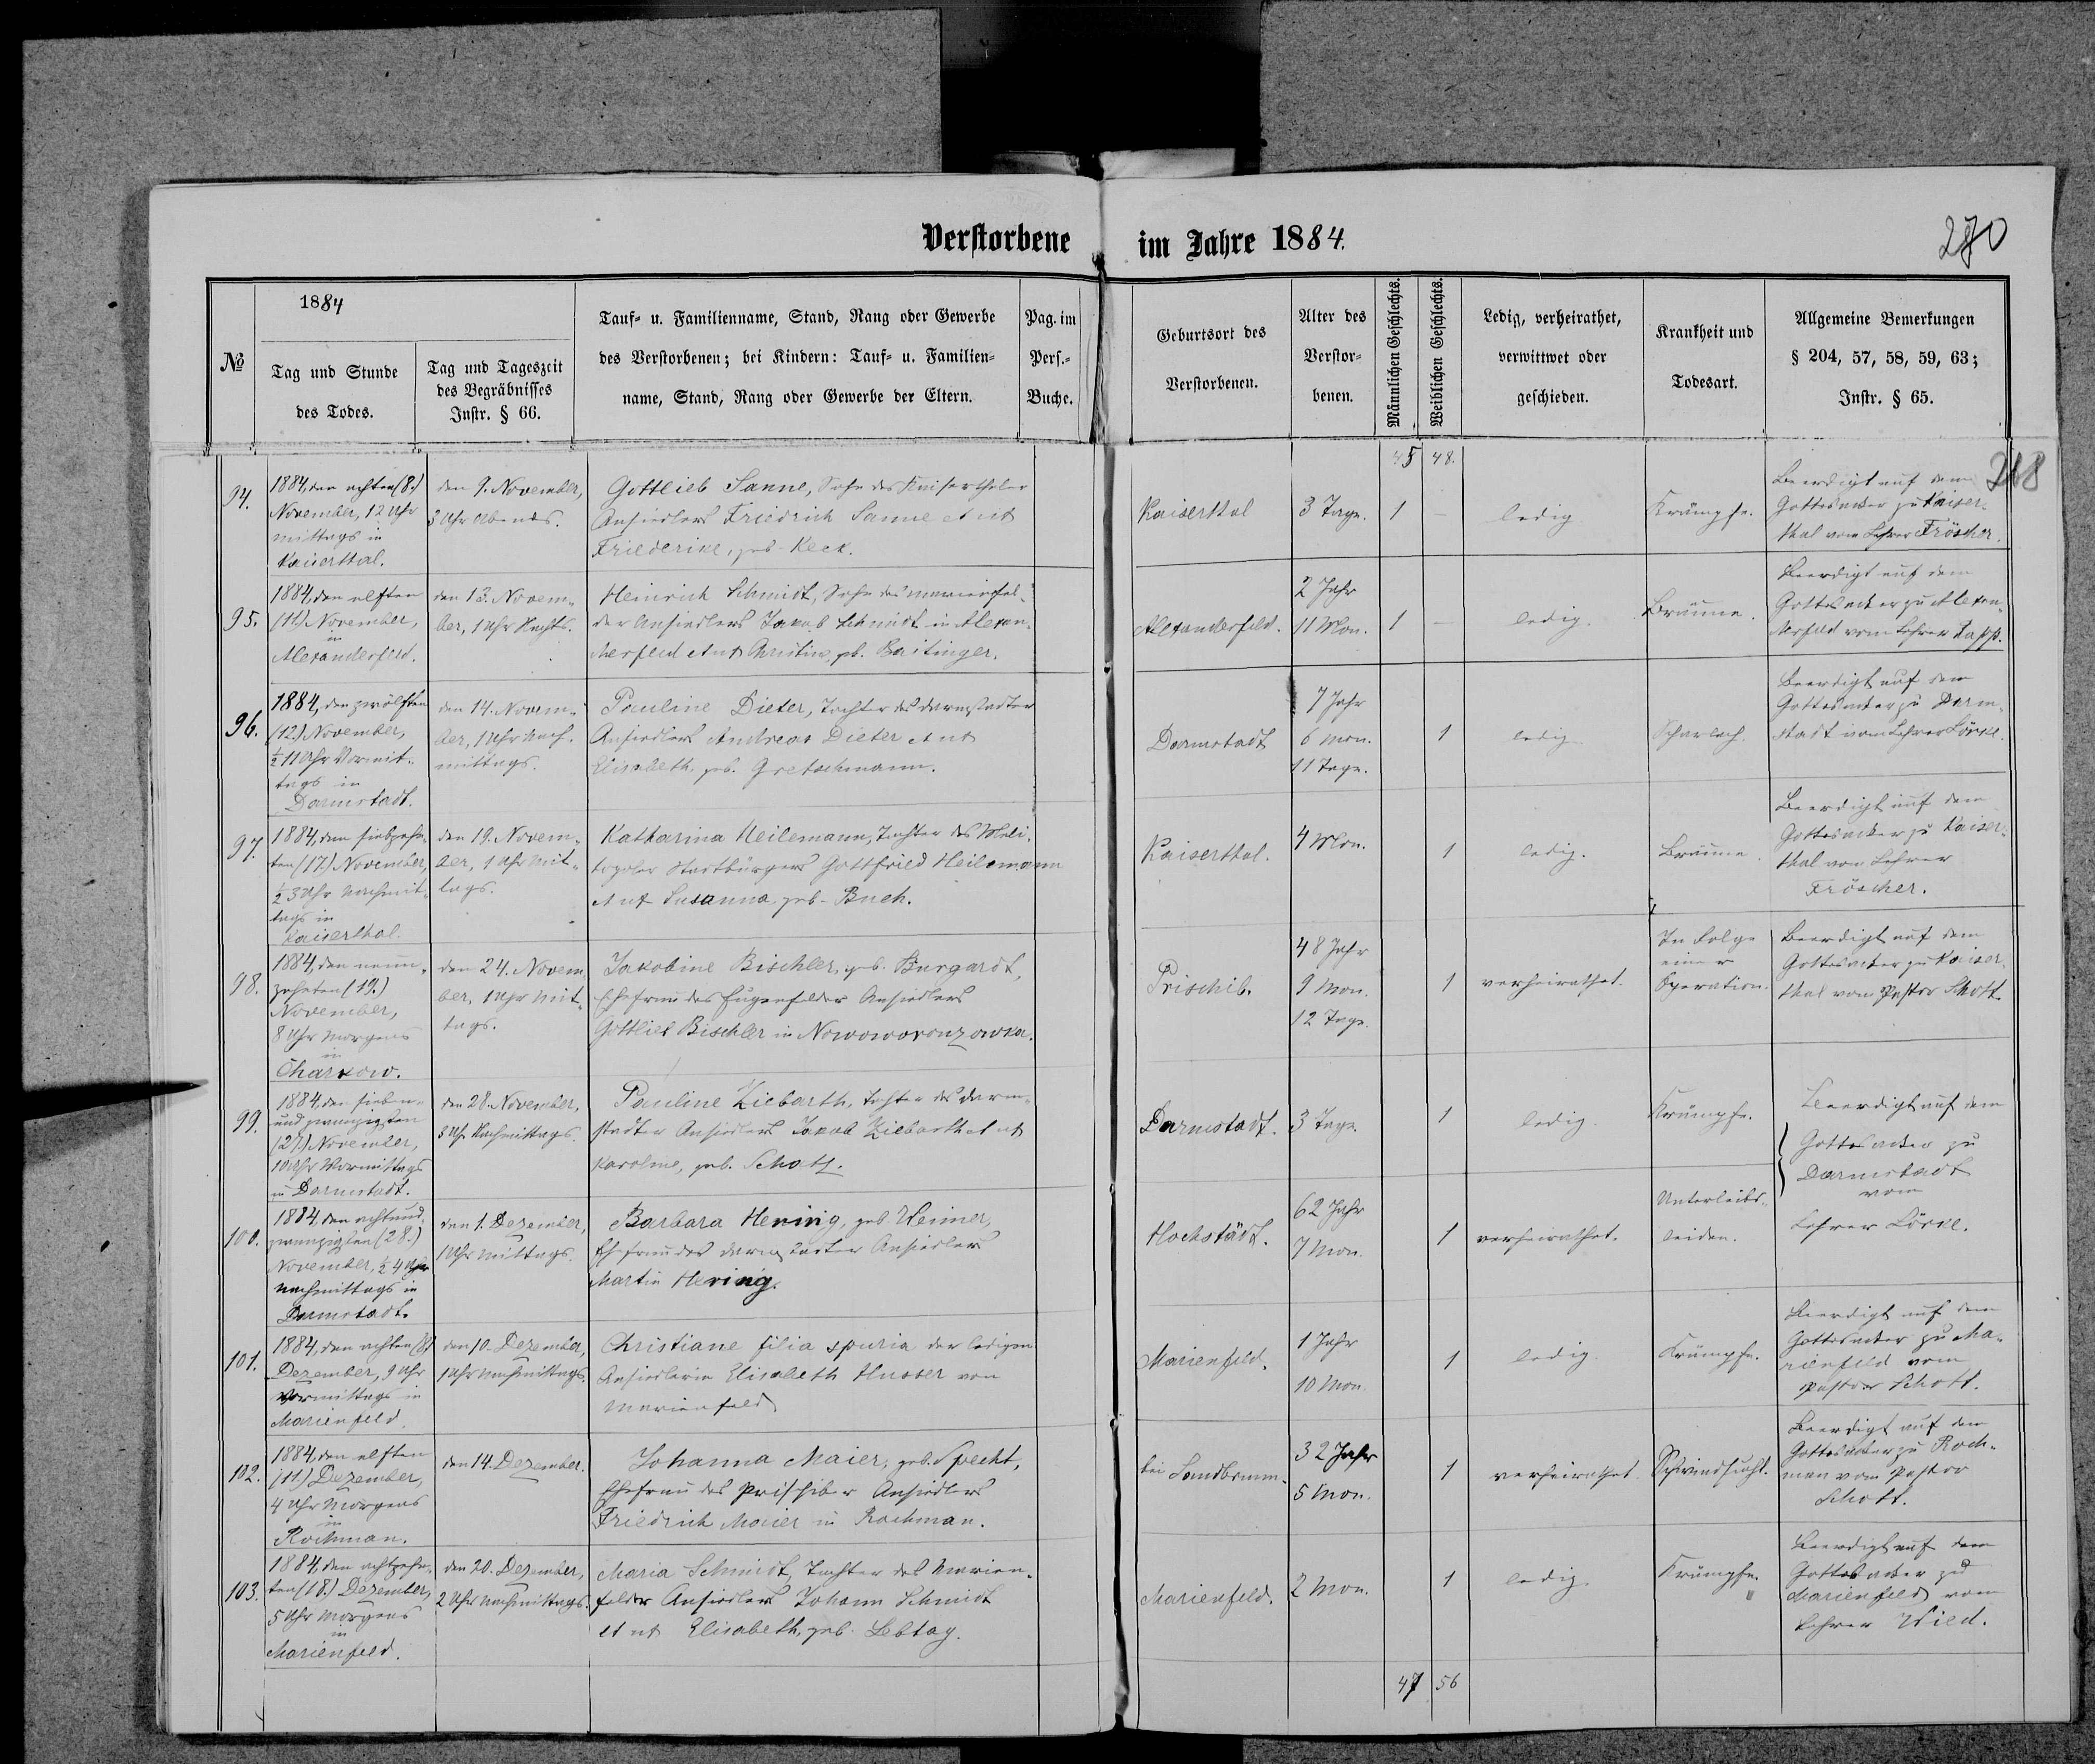 Verstorbene im Jahre 1884.
280
№
1884
Tag und Stunde
des Todes.
Tag und Tageszeit
des Begräbnisses
Instr. § 66.
Tauf- u. Familienname, Stand, Rang oder Gewerbe
des Verstorbenen; bei Kindern: Tauf- u. Familien-
name, Stand, Rang oder Gewerbe der Eltern.
Pag. im
Pers.-
Buche.
Geburtsort des
Verstorbenen.
Alter des
Verstor-
benen.
Männlichen Geschlechts.
Weiblichen Geschlechts.
Ledig, verheirathet,
verwittwet oder
geschieden.
Krankheit und
Todesart.
Allgemeine Bemerkungen
§ 204, 57, 58, 59, 63;
Instr. § 65.
45 48.
94.
1884, den achten (8.)
November, 12 Uhr
mittags in
Kaiserthal.
den 9. November,
3 Uhr Abends.
Gottlieb Sanne, Sohn des Kaiserthaler
Ansiedlers Friedrich Sanne et ux
Friederike, geb. Keck.
Kaiserthal
3 Tage.
1
–
ledig
Krämpfe.
Beerdigt auf dem
Gottesacker zu Kaiser-
thal vom Lehrer Fröscher.
95.
1884, den elften
(11.) November,
in
Alexanderfeld.
den 13. Novem-
ber, 1 Uhr Nachts.
Heinrich Schmidt, Sohn des Marienfel-
der Ansiedlers Jakob Schmidt in Alexan-
derfeld et ux Christine, gb. Baitinger.
Alexanderfeld.
2 Jahr
11 Mon.
1
–
ledig.
Bräune.
Beerdigt auf dem
Gottesacker zu Alexan-
derfeld vom Lehrer
96.
1884, den zwölften
(12.) November,
½ 11 Uhr Vormit-
tags in
Darmstadt.
den 14. Novem-
ber, 1 Uhr Nach-
mittags.
Pauline Dieter, Tochter des darmstadter
Ansiedlers Andreas Dieter et ux
Elisabeth, geb. Gretschmann.
Darmstadt
7 Jahr
6 Mon.
11 Tage.
1
ledig
Scharlach.
Beerdigt auf dem
Gottesacker zu Darm-
stadt vom Lehrer Lörke.
97.
1884, den siebzehn-
ten (17.) November,
½ 3 Uhr Nachmit-
tags in
Kaiserthal.
den 19. Novem-
ber, 1 Uhr Mit-
tags.
Katharina Heilemann, Tochter des Meli-
topoler Stadtbürgers Gottfried Heilemann
et ux Susanna geb. Buch.
Kaiserthal.
4 Mon.
1
ledig.
Bräune.
Beerdigt auf dem
Gottesacker zu Kaiser-
thal vom Lehrer
Fröscher.
98.
1884, den neun-
zehnten (19.)
November,
8 Uhr Morgens
in
Charkow.
den 24. Novem
ber, 1 Uhr Mit-
tags.
Jakobine Bischler, geb. Burgardt,
Ehefrau des Eugenfelder Ansiedlers
Gottlieb Bischler in Nowoworonzowka.
Prischib.
48 Jahr
9 Mon.
12 Tage.
1
verheirathet.
In Folge
einer
Operation.
Beerdigt auf dem
Gottesacker zu Kaiser-
thal von Pastor Schott.
99.
1884, den sieben-
und zwanzigsten
(27.) November,
10 Uhr Vormittags
in Darmstadt.
den 28. November,
3 Uhr Nachmittags.
Pauline Ziebarth, Tochter des darm-
stadter Ansiedlers Jakob Ziebarth et ux
Karoline, geb. Schatz.
Darmstadt.
3 Tage.
1
ledig.
Krämpfe.
Beerdigt auf dem
Gottesacker zu
Darmstadt
vom
Lehrer Lörke.
100.
1884, den achtund
zwanzigsten (28.)
November, ½ 4 Uhr
Nachmittags in
Darmstadt.
den 1. Dezember,
1 Uhr Mittags.
Barbara Hering, geb. Heimer,
Ehefrau des darmstadter Ansiedlers
Martin Hering.
Hochstädt.
62 Jahr
7 Mon.
1
verheirathet.
Unterleibs-
leiden.
101.
1884, den achten (8.)
Dezember, 9 Uhr
Vormittags in
Marienfeld.
den 10. Dezember,
1 Uhr Nachmittags.
Christiane filia spuria der ledigen
Ansiedlerin Elisabeth Husser von
Marienfeld
Marienfeld.
1 Jahr
10 Mon.
1
ledig.
Krämpfe.
Beerdigt auf dem
Gottesacker zu Ma-
rienfeld vom
Pastor Schott.
102.
1884, den elften
(11.) Dezember,
4 Uhr Morgens
in
Rochman.
den 14. Dezember.
Johanna Maier, geb. Specht,
Ehefrau des Prischiber Ansiedlers
Friedrich Maier in Rochman.
bei Sandbrunn.
32 Jahr
5 Mon.
1
verheirathet.
Schwindsucht.
Beerdigt auf dem
Gottesacker zu Roch-
man vom Pastor
Schott.
103.
1884, den achtzehn-
ten (18.) Dezember,
5 Uhr Morgens
in
Marienfeld.
den 20. Dezember,
2 Uhr Nachmittags.
Maria Schmidt, Tochter des Marien-
felder Ansiedlers Johann Schmidt
et ux Elisabeth, geb. Lebtag.
Marienfeld.
2 Mon.
1
ledig.
Krämpfe.
Beerdigt auf dem
Gottesacker zu
Marienfeld vom
Lehrer Wied.
47 56